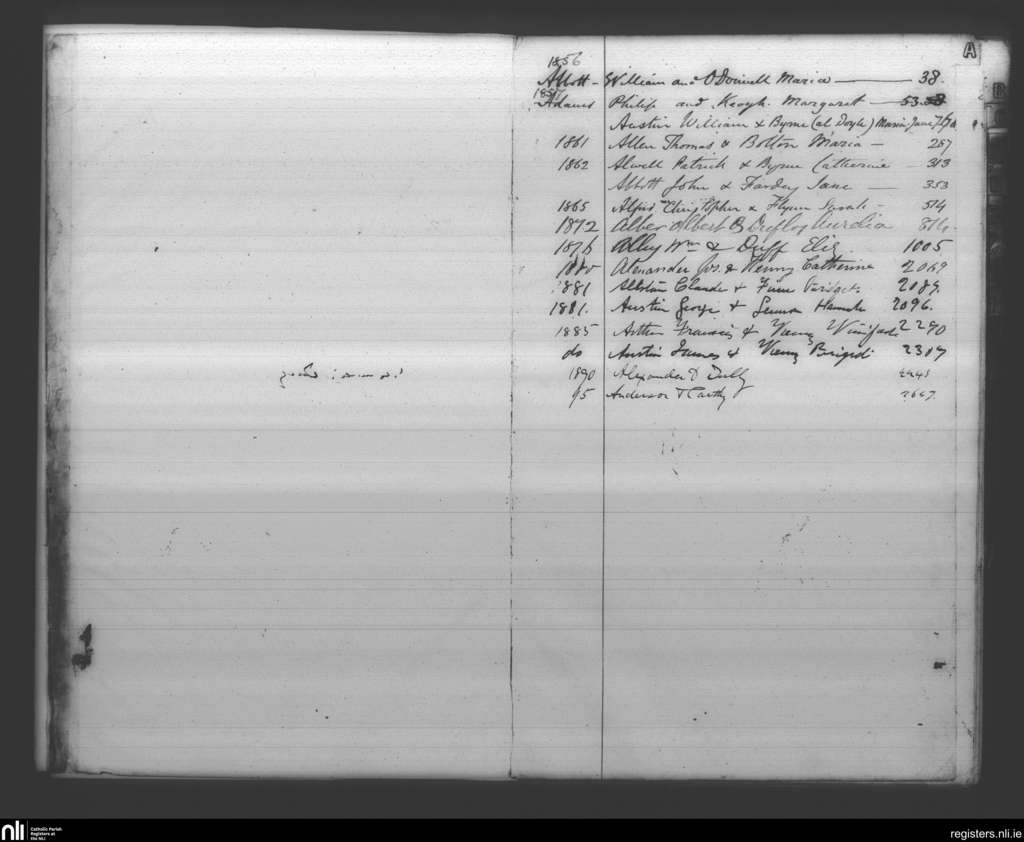 A
1856
Abbott - William and O'Donnell Maria — 38.
1857
Adams Philip and Keogh Margaret — 53.
Austin William & Byrne (al Doyle) Maria Jane
1861 Allen Thomas & Bolton Maria — 257
1862 Alwell Patrick & Byrne Catherine 313
Abbott John & Farday Jane — 353
1865 Christopher & Flynn Sarah - 514
1872 Alber Albert & Duflos Aurelia 814.
1876 Alley Wm & Duff Eliz 1005
1880 Alexander Jos. & Kenny Catherine 2069
1881 Claude & Bridget 2089.
1881. Austin George & Lennon Hannah 2096.
1885 Arthur Francis & Winifred 2290
do Austin James & Brigid 2307
1890 Alexander & Tully
95 Anderson & Carthy 2667
nli Catholic Parish
Registers at
the NLI
registers.nli.ie